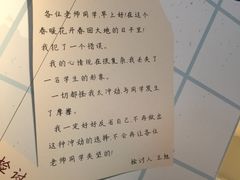 各位老师同学早上好!在这个
春暖花开春回大地的日子里!
我犯了一个错误。
我的心情现在很复杂,我丢失了
一名学生的形象。
一切都怪我太冲动与同学发生
了摩擦。
我一定好好反省自己,不再做出
这种冲动的选择,不会再让各位
老师同学失望的!
检讨人 王旭
检讨